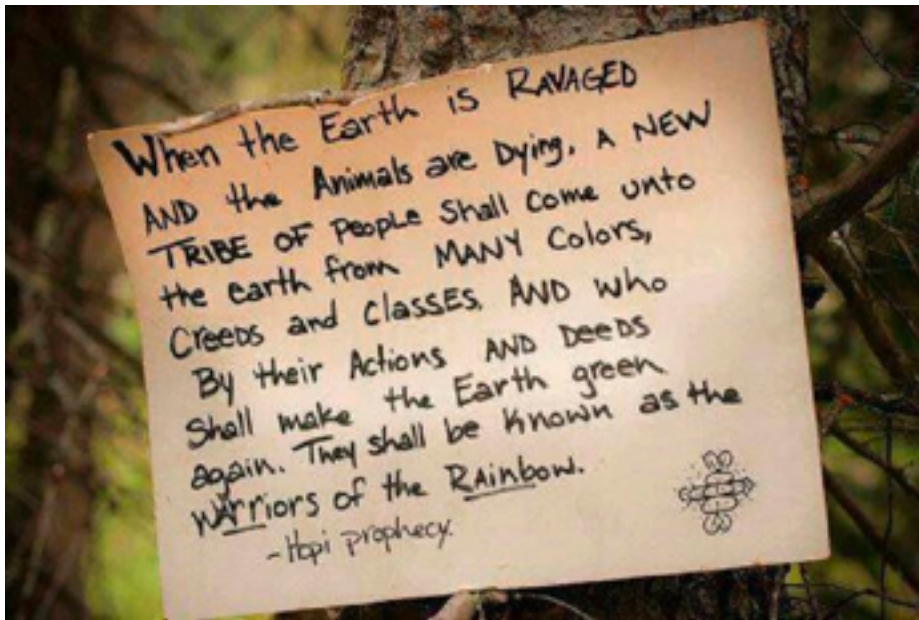 When the Earth is RAVAGED
AND the Animals are Dying, A NEW
TRIBE OF PeoPLE Shall Come unto
the earth from MANY Colors,
CreeDS and ClassES, AND who
By their Actions AND DeeDS
Shall make the Earth green
again. They shall be Known as the
WARRiors of the RAinbow.
-Hopi prophecy.